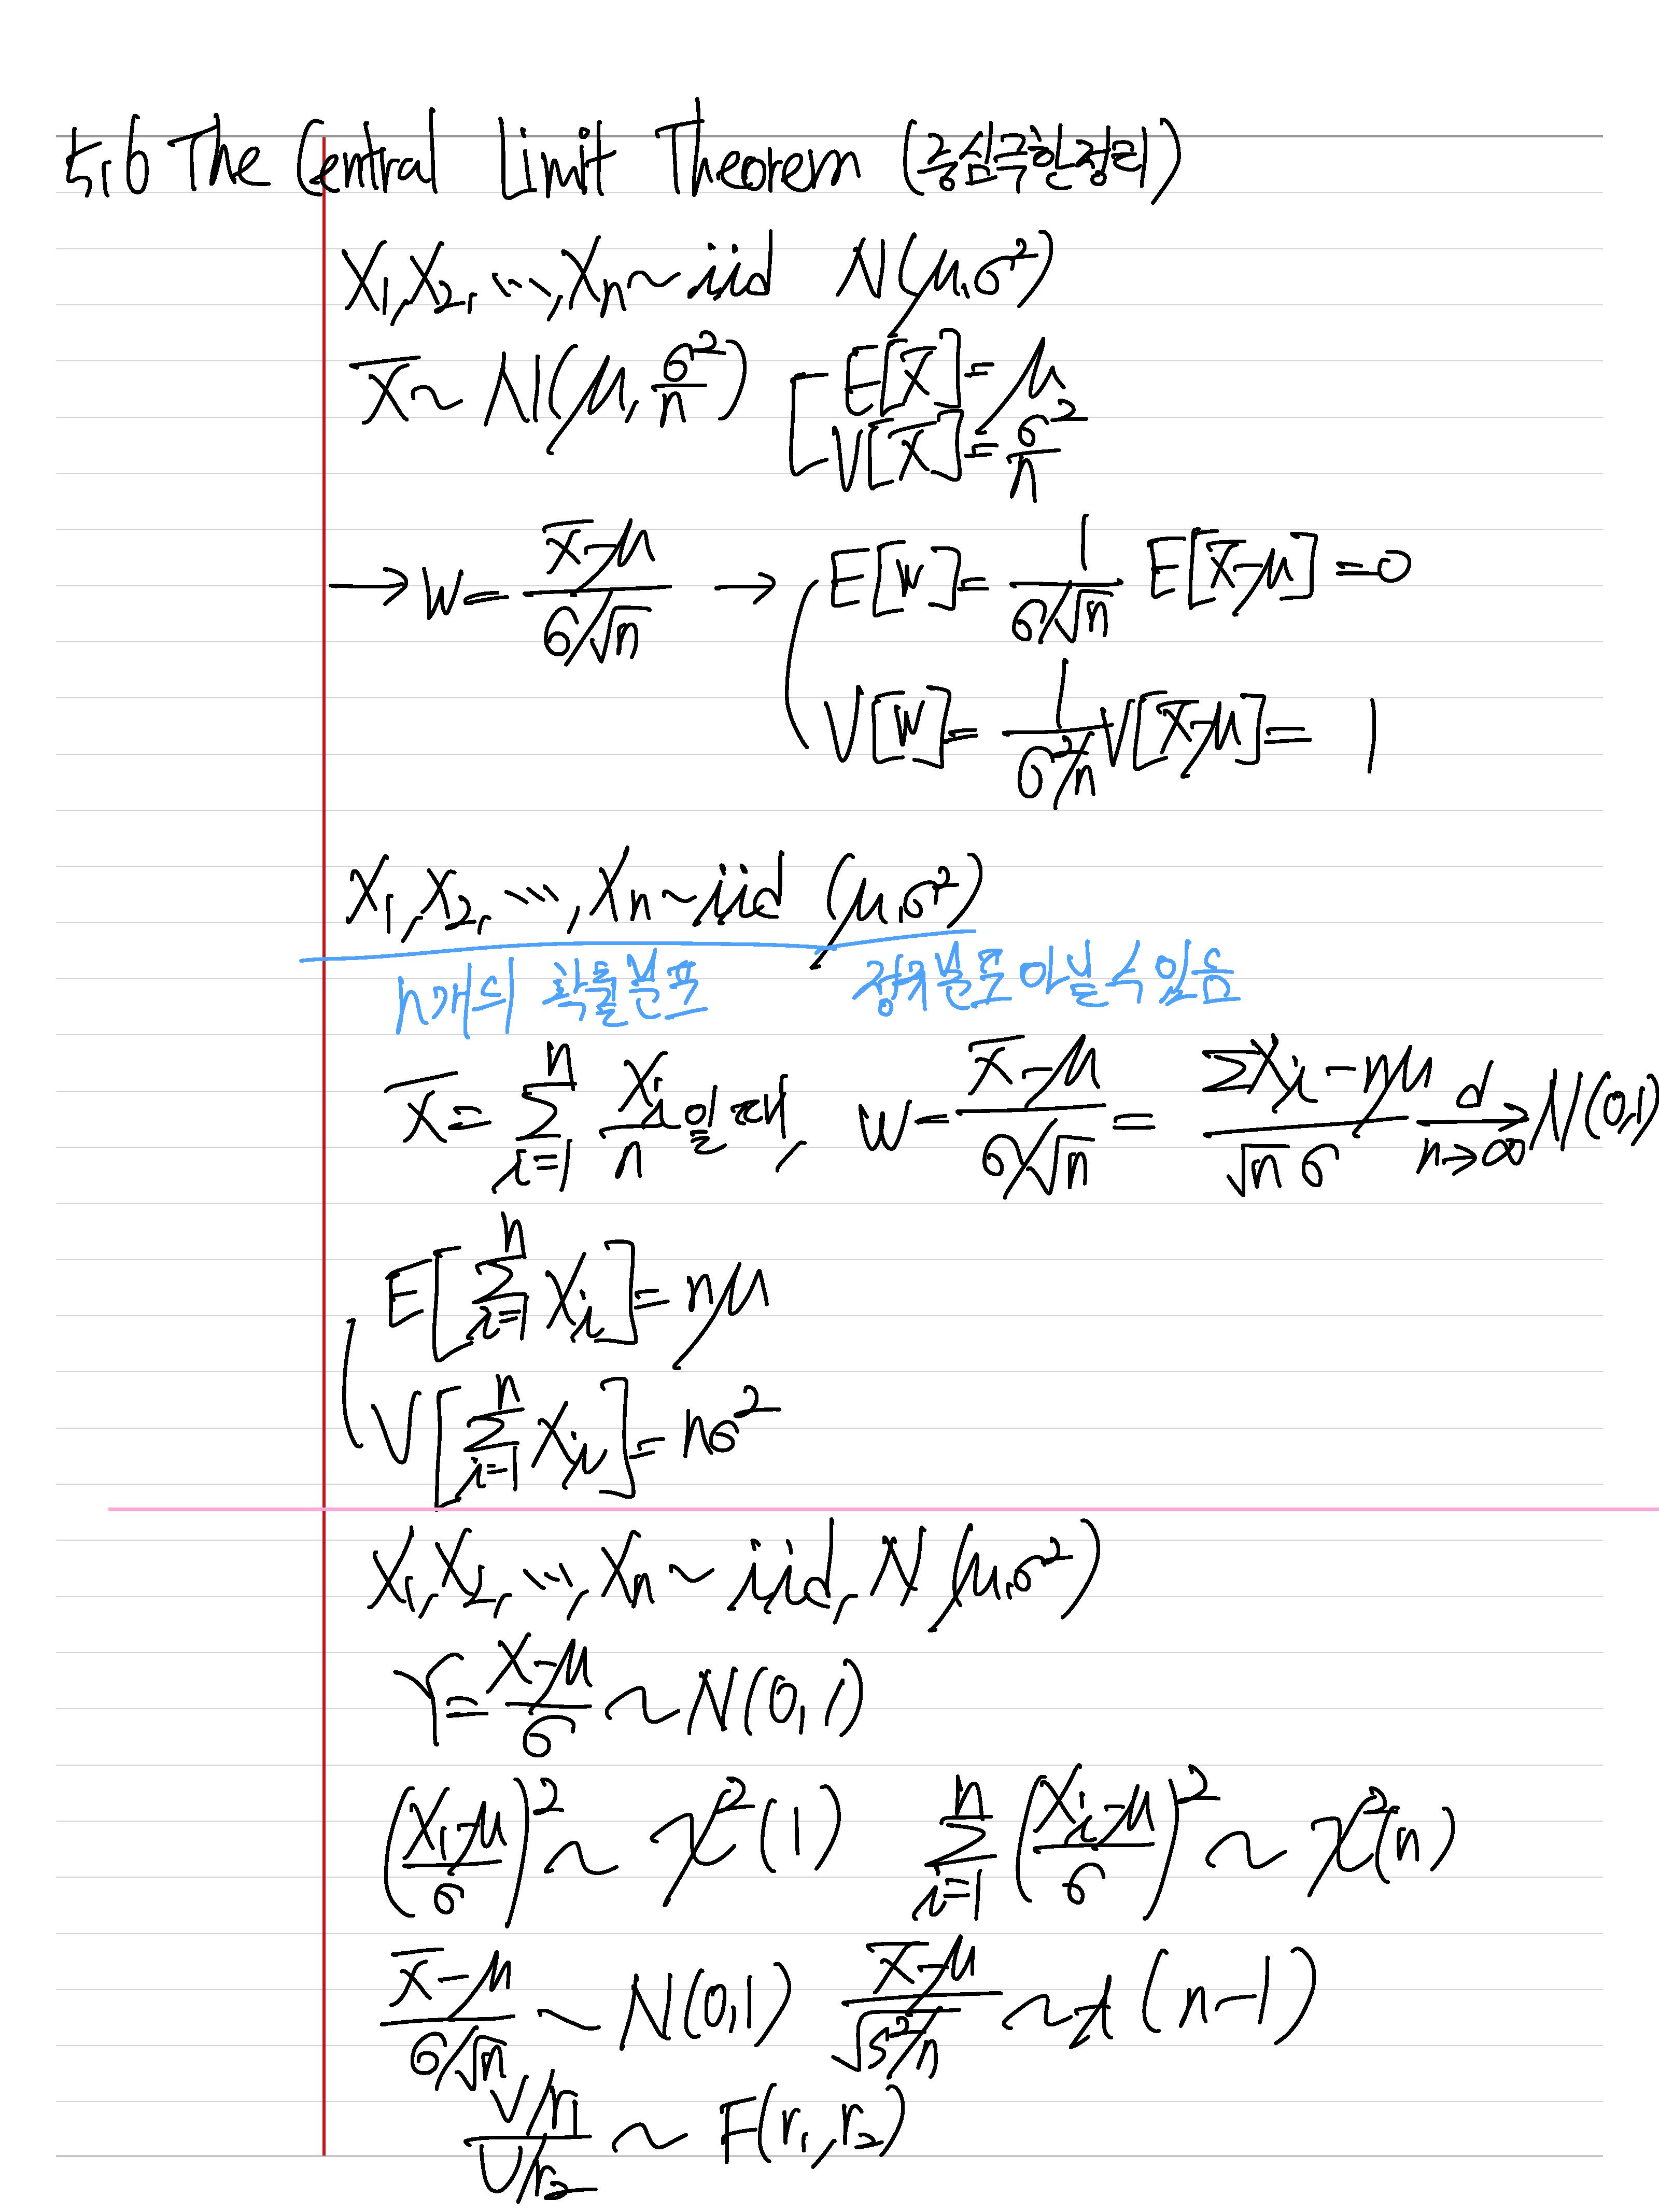 5.6 The Central Limit Theorem (중심극한정리)
X₁, X₂, ⋯, Xₙ ~ iid N(μ, σ²)
X̄ ~ N(μ, σ²/n) [ E[X̄] = μ
V[X̄] = σ²/n
→ W = (X̄-μ)/(σ/√n) → E[W] = 1/(σ/√n) E[X̄-μ] = 0
V[W] = 1/(σ²/n) V[X̄-μ] = 1
X₁, X₂, ⋯, Xₙ ~ iid (μ, σ²)
n개의 확률분포 정규분포 아닐 수 있음
X̄ = Σᵢ₌₁ⁿ Xᵢ/n 일 때, W = (X̄-μ)/(σ/√n) = (ΣXᵢ - nμ)/(√n σ) →(d, n→∞) N(0,1)
E[Σᵢ₌₁ⁿ Xᵢ] = nμ
V[Σᵢ₌₁ⁿ Xᵢ] = nσ²
X₁, X₂, ⋯, Xₙ ~ iid, N(μ, σ²)
Y = (X-μ)/σ ~ N(0,1)
((X₁-μ)/σ)² ~ χ²(1) Σᵢ₌₁ⁿ ((Xᵢ-μ)/σ)² ~ χ²(n)
(X̄-μ)/(σ/√n) ~ N(0,1) (X̄-μ)/√(S²/n) ~ t(n-1)
(V/r₁)/(U/r₂) ~ F(r₁, r₂)